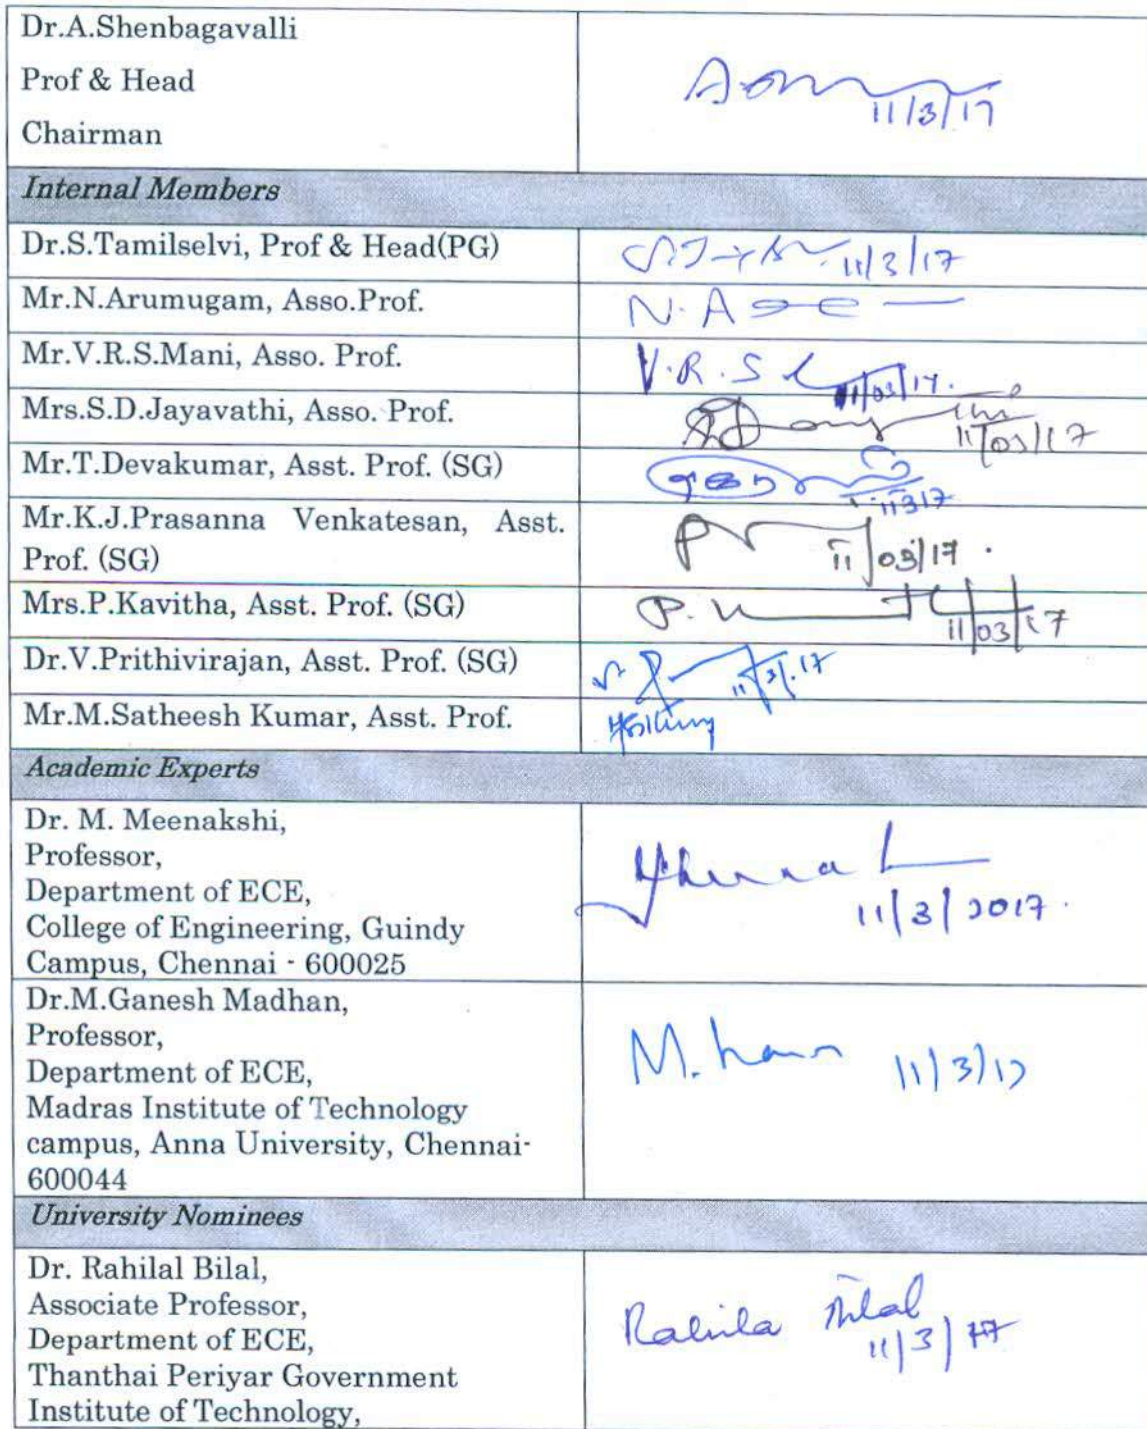 Dr.A.Shenbagavalli
Prof & Head
Chairman
11/3/17
Internal Members
Dr.S.Tamilselvi, Prof & Head(PG)
11/3/17
Mr.N.Arumugam, Asso.Prof.
N.A
Mr.V.R.S.Mani, Asso. Prof.
V.R.S
11/03/17.
Mrs.S.D.Jayavathi, Asso. Prof.
11/03/17
Mr.T.Devakumar, Asst. Prof. (SG)
11317
Mr.K.J.Prasanna Venkatesan, Asst.
Prof. (SG)
11/03/17.
Mrs.P.Kavitha, Asst. Prof. (SG)
P.
11/03/17
Dr.V.Prithivirajan, Asst. Prof. (SG)
11/3/.17
Mr.M.Satheesh Kumar, Asst. Prof.
Academic Experts
Dr. M. Meenakshi,
Professor,
Department of ECE,
College of Engineering, Guindy
Campus, Chennai - 600025
11/3/2017.
Dr.M.Ganesh Madhan,
Professor,
Department of ECE,
Madras Institute of Technology
campus, Anna University, Chennai-
600044
M.
11/3/17
University Nominees
Dr. Rahilal Bilal,
Associate Professor,
Department of ECE,
Thanthai Periyar Government
Institute of Technology,
Rahila Bilal
11/3/17